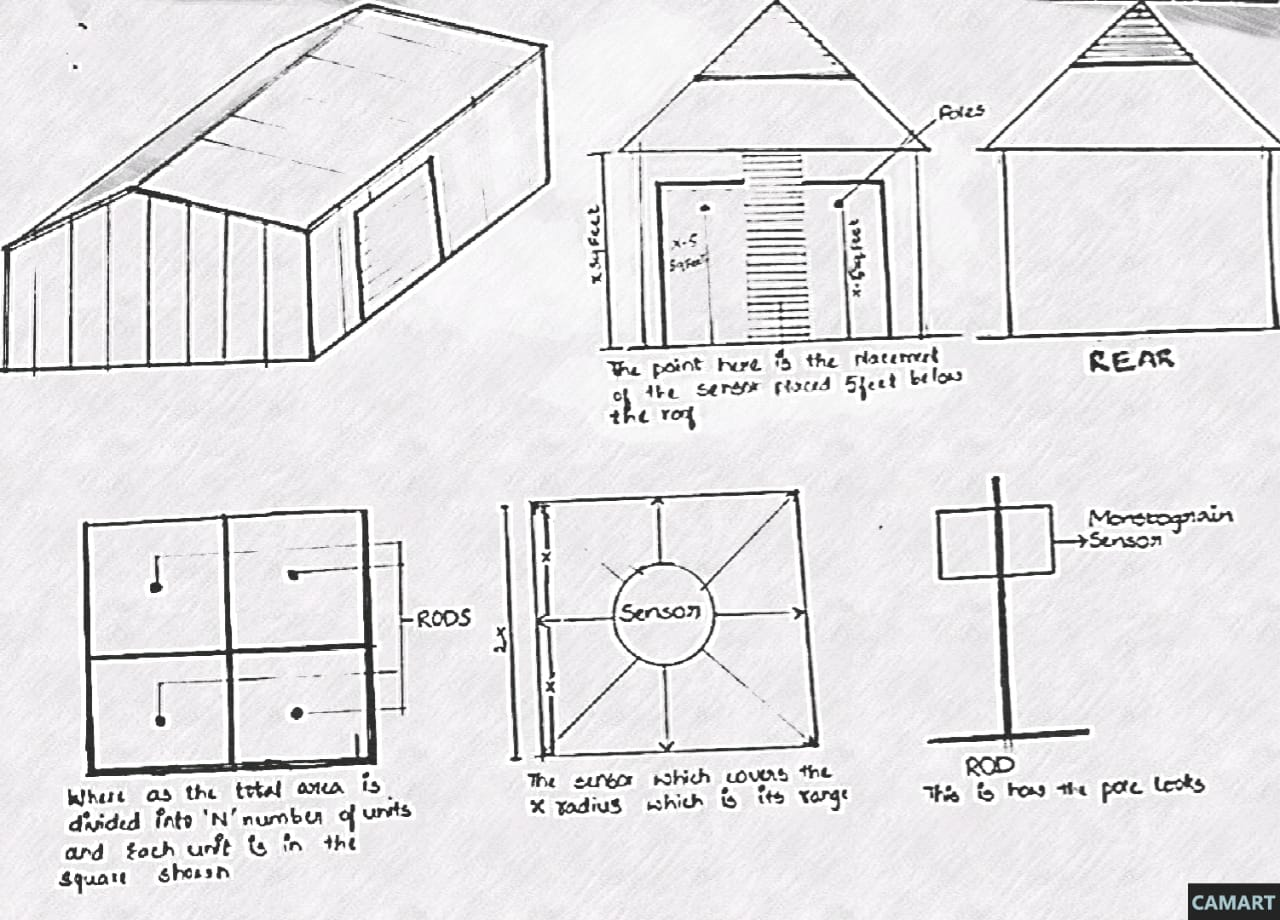 Poles
X sq Feet
X-5
Sq Feet
X-5 sq Feet
The point here is the placement
of the sensor placed 5feet below
the roof
REAR
RODS
Where as the total area is
divided into 'N' number of units
and Each unit is in the
square shown
2x
x
x
Sensor
The sensor which covers the
x radius which is its range
Monstograin
Sensor
ROD
This is how the pole looks
CAMART